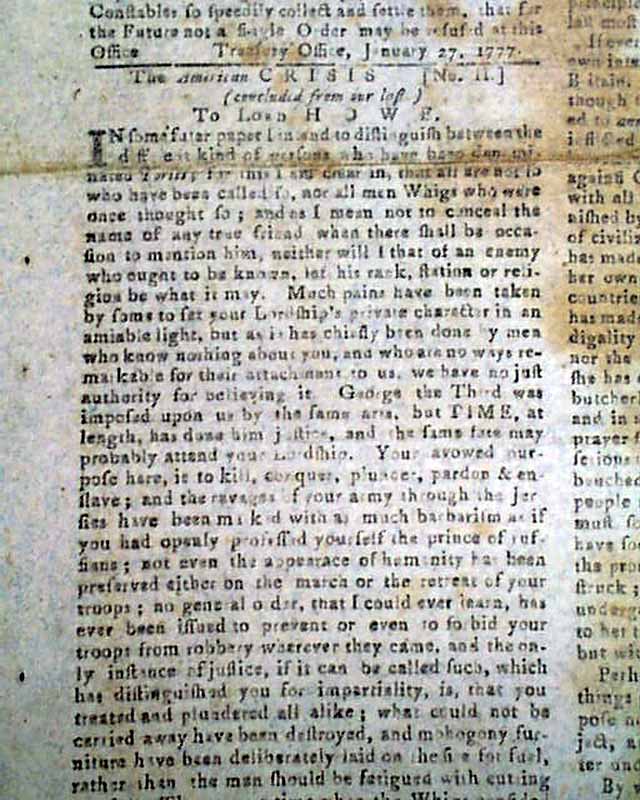 Constables so speedily collect and settle them, that for
the Future not a single Order may be refused at this
Office Treasury Office, January 27, 1777.
The American CRISIS [No. II.]
(concluded from our last.)
To Lord HOWE.
IN some future paper I intend to distinguish between the
different kind of persons who have been denomi-
nated Tories; for this I am clear in, that all are not so
who have been called so, nor all men Whigs who were
once thought so; and as I mean not to conceal the
name of any true friend when there shall be occa-
sion to mention him, neither will I that of an enemy
who ought to be known, let his rank, station or reli-
gion be what it may. Much pains have been taken
by some to set your Lordship's private character in an
amiable light, but as it has chiefly been done by men
who know nothing about you, and who are no ways re-
markable for their attachment to us, we have no just
authority for believing it. George the Third was
imposed upon us by the same arts, but TIME, at
length, has done him justice, and the same fate may
probably attend your Lordship. Your avowed pur-
pose here, is to kill, conquer, plunder, pardon & en-
slave; and the ravages of your army through the Jer
sies have been marked with as much barbarism as if
you had openly professed yourself the prince of ruf-
fians; not even the appearace of humanity has been
preserved either on the march or the retreat of your
troops; no general order, that I could ever learn, has
ever been issued to prevent or even to forbid your
troops from robbery wherever they came, and the on-
ly instance of justice, if it can be called such, which
has distinguished you for impartiality, is, that you
treated and plundered all alike; what could not be
carried away have been destroyed, and mohogony fur-
niture have been deliberately laid on the fire for fuel,
rather than the men should be fatigued with cutting
principle
last most
If ever
own inte
Britain.
though
ed to
against C
with all
nished by
of civiliz
has made
her own
countries
has made
digality
nor the
she has
butcherl
and in
prayer
serious
butched
people
must so
have so
the pro
struck;
underg
to her
but wit
Perh
things
pose n
ject, a
ter und
By